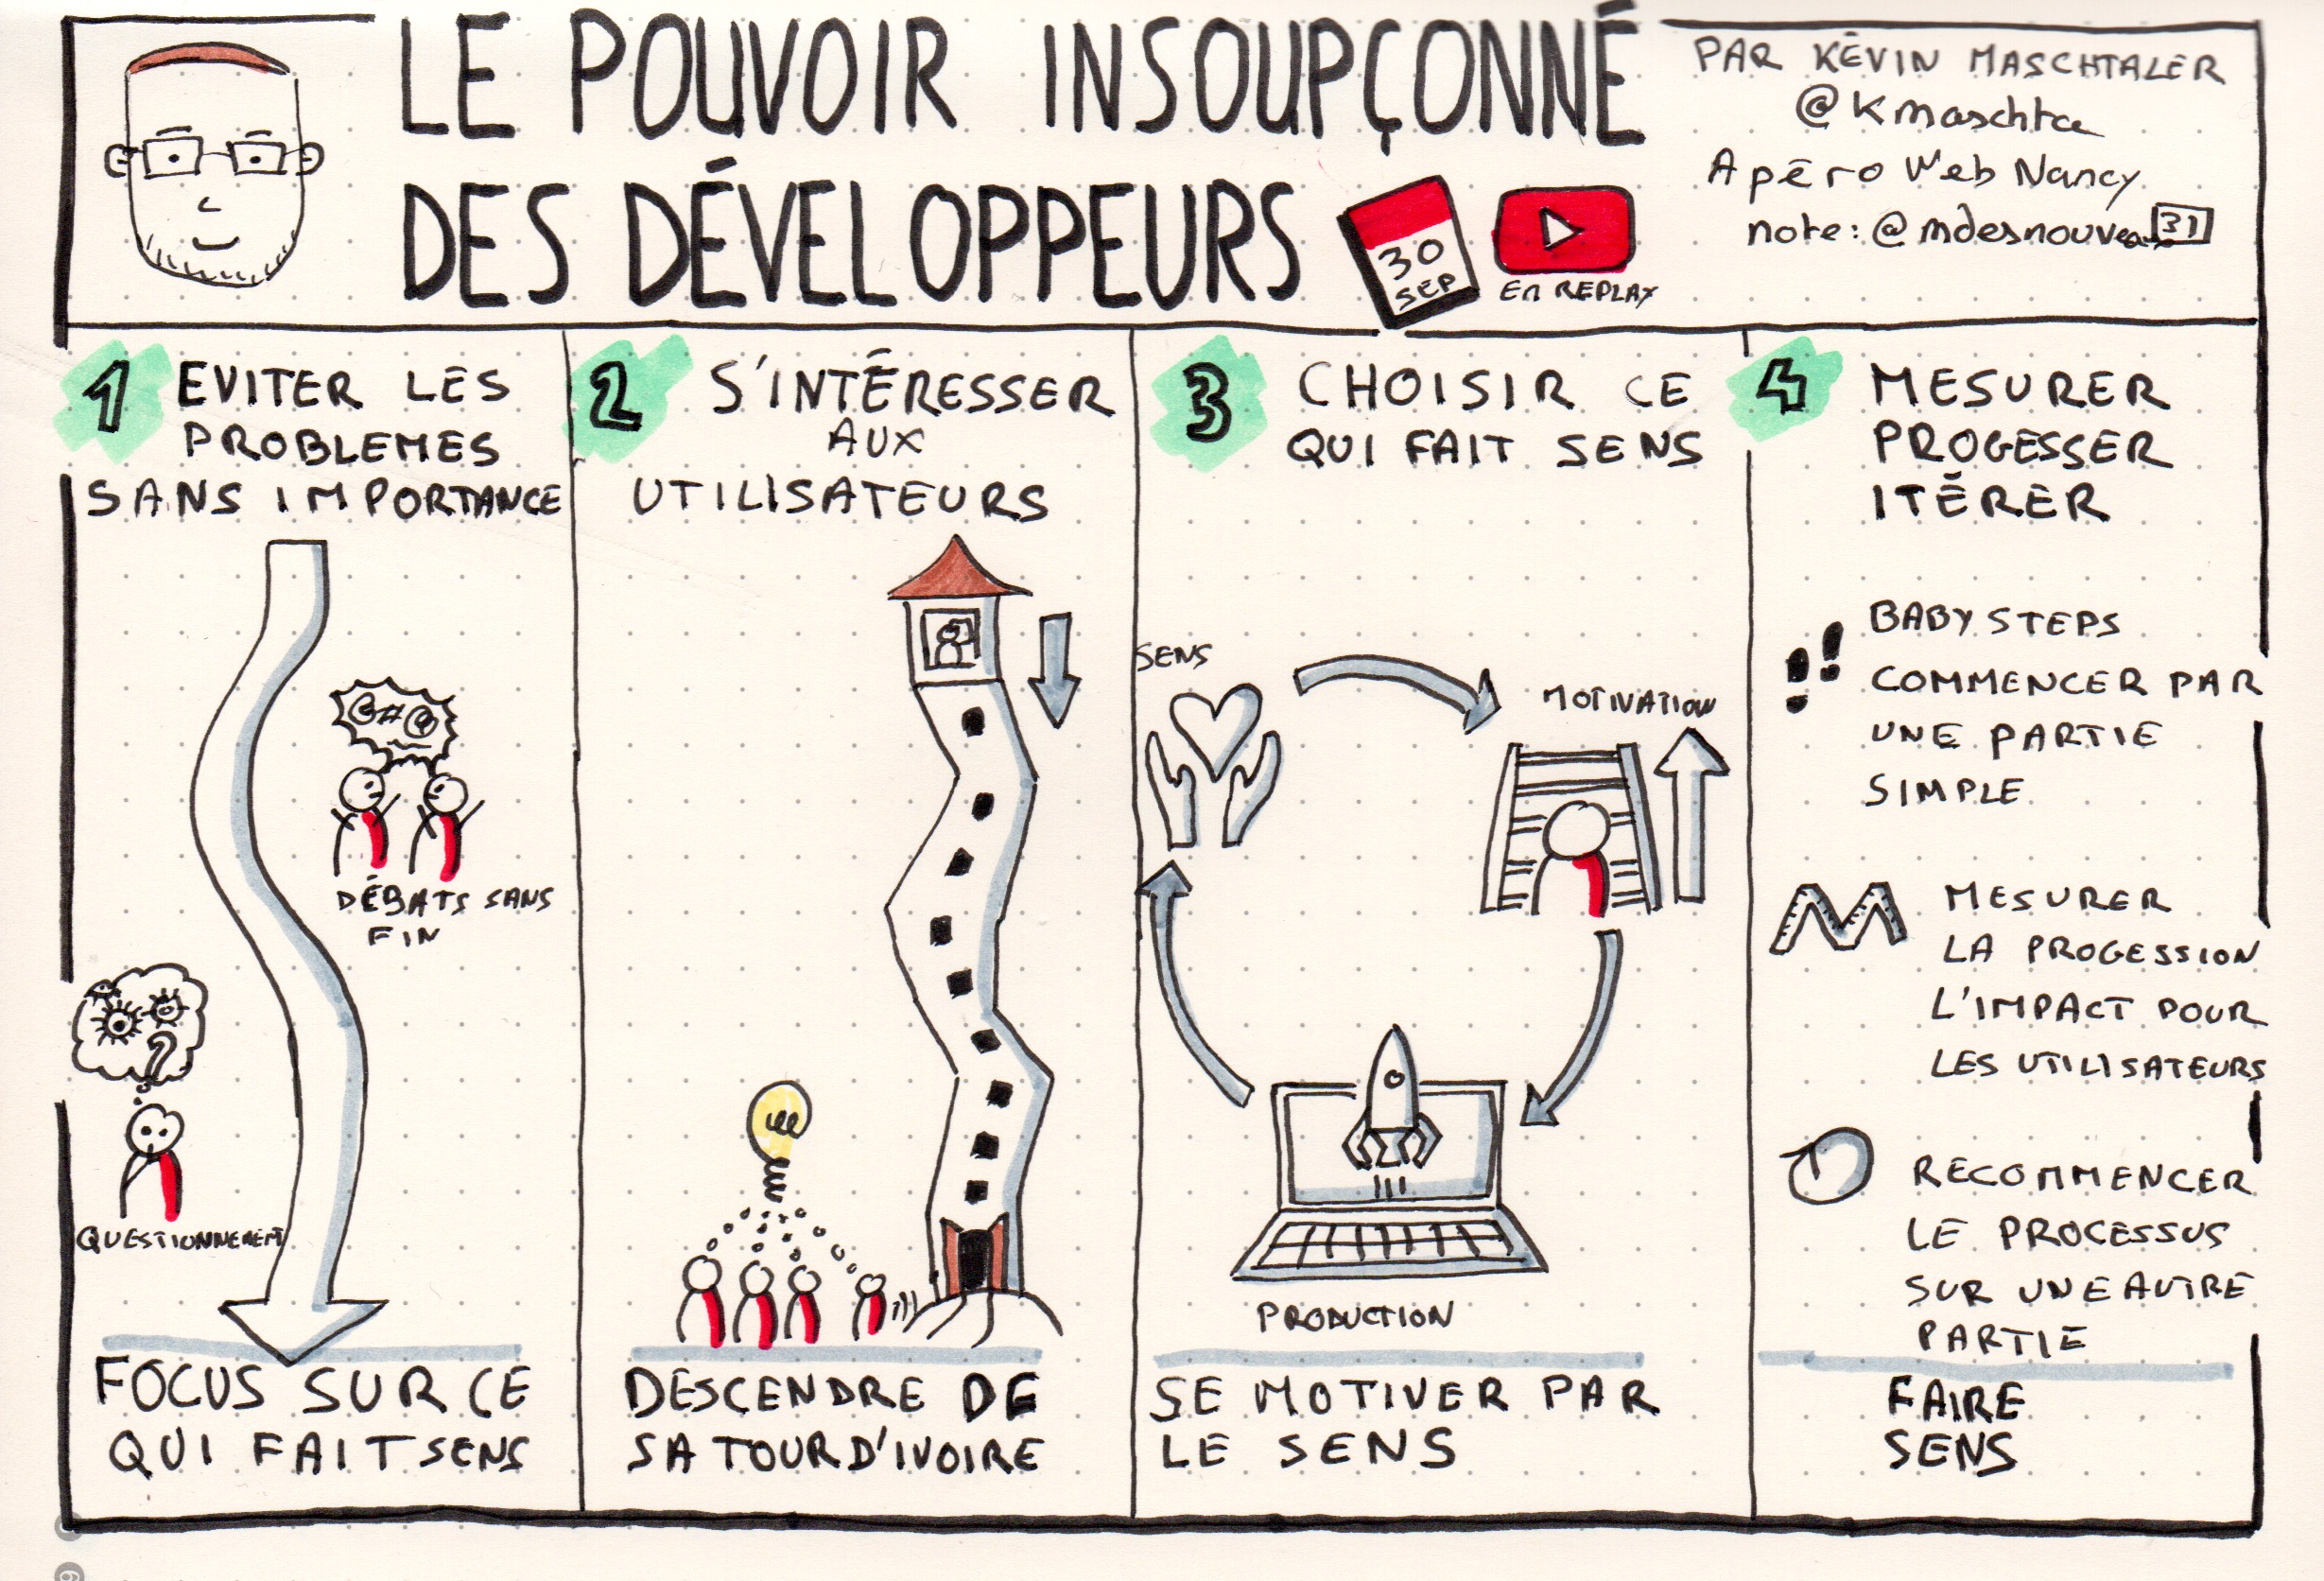 LE POUVOIR INSOUPÇONNÉ
DES DÉVELOPPEURS
30
SEP
EN REPLAY
PAR KÉVIN MASCHTALER
@Kmaschta
Apéro Web Nancy
note: @mdesnouveaux
31
1 EVITER LES
PROBLEMES
SANS IMPORTANCE
DÉBATS SANS
FIN
?
QUESTIONNEMENT
FOCUS SUR CE
QUI FAIT SENS
2 S'INTÉRESSER
AUX
UTILISATEURS
DESCENDRE DE
SA TOUR D'IVOIRE
3 CHOISIR CE
QUI FAIT SENS
SENS
MOTIVATION
PRODUCTION
SE MOTIVER PAR
LE SENS
4 MESURER
PROGESSER
ITÉRER
BABY STEPS
COMMENCER PAR
UNE PARTIE
SIMPLE
MESURER
LA PROGESSION
L'IMPACT POUR
LES UTILISATEURS
RECOMMENCER
LE PROCESSUS
SUR UNE AUTRE
PARTIE
FAIRE
SENS